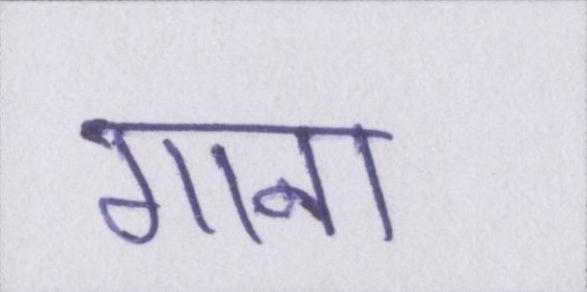 गाना